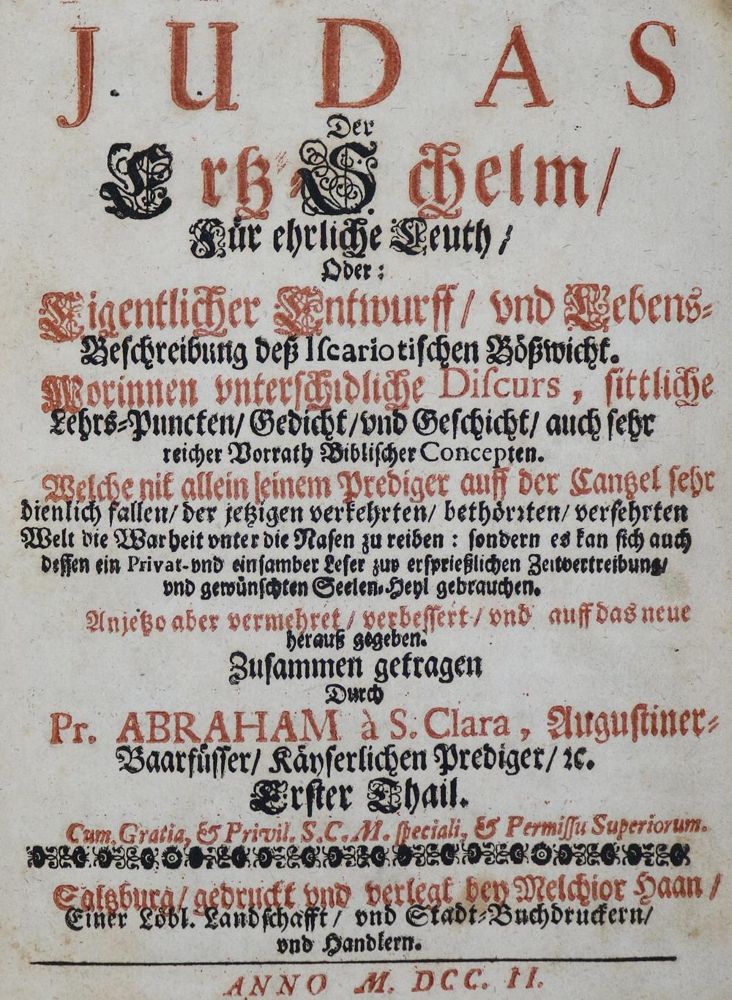 JUDAS
Der
Ertz-Schelm/
Für ehrliche Leuth/
Oder:
Eigentlicher Entwurff/ vnd Lebens-
Beschreibung deß Iscariotischen Bößwicht.
Worinnen vnterschidliche Discurs, sittliche
Lehrs-Puncten/ Gedicht/ vnd Geschicht/ auch sehr
reicher Vorrath Biblischer Concepten.
Welche nit allein seinem Prediger auff der Cantzel sehr
dienlich fallen/ der jetzigen verkehrten/ bethörzten/ versehrten
Welt die Warheit vnter die Nasen zu reiben: sondern es kan sich auch
dessen ein Privat- vnd einsamber Leser zur ersprießlichen Zeitvertreibung/
vnd gewünschten Seelen-Heyl gebrauchen.
Anjetzo aber vermehret/ verbessert/ vnd auff das neue
herauß gegeben.
Zusammen getragen
Durch
Pr. ABRAHAM à S. Clara, Augustiner-
Baarfüsser/ Käyserlichen Prediger/ ꝛc.
Erster Thail.
Cum Gratia, & Privil. S. C. M. speciali, & Permissu Superiorum.
Saltzburg/ gedruckt vnd verlegt bey Melchior Haan/
Einer Löbl. Landschafft/ vnd Stadt-Buchdruckern/
vnd Handlern.
ANNO M. DCC. II.